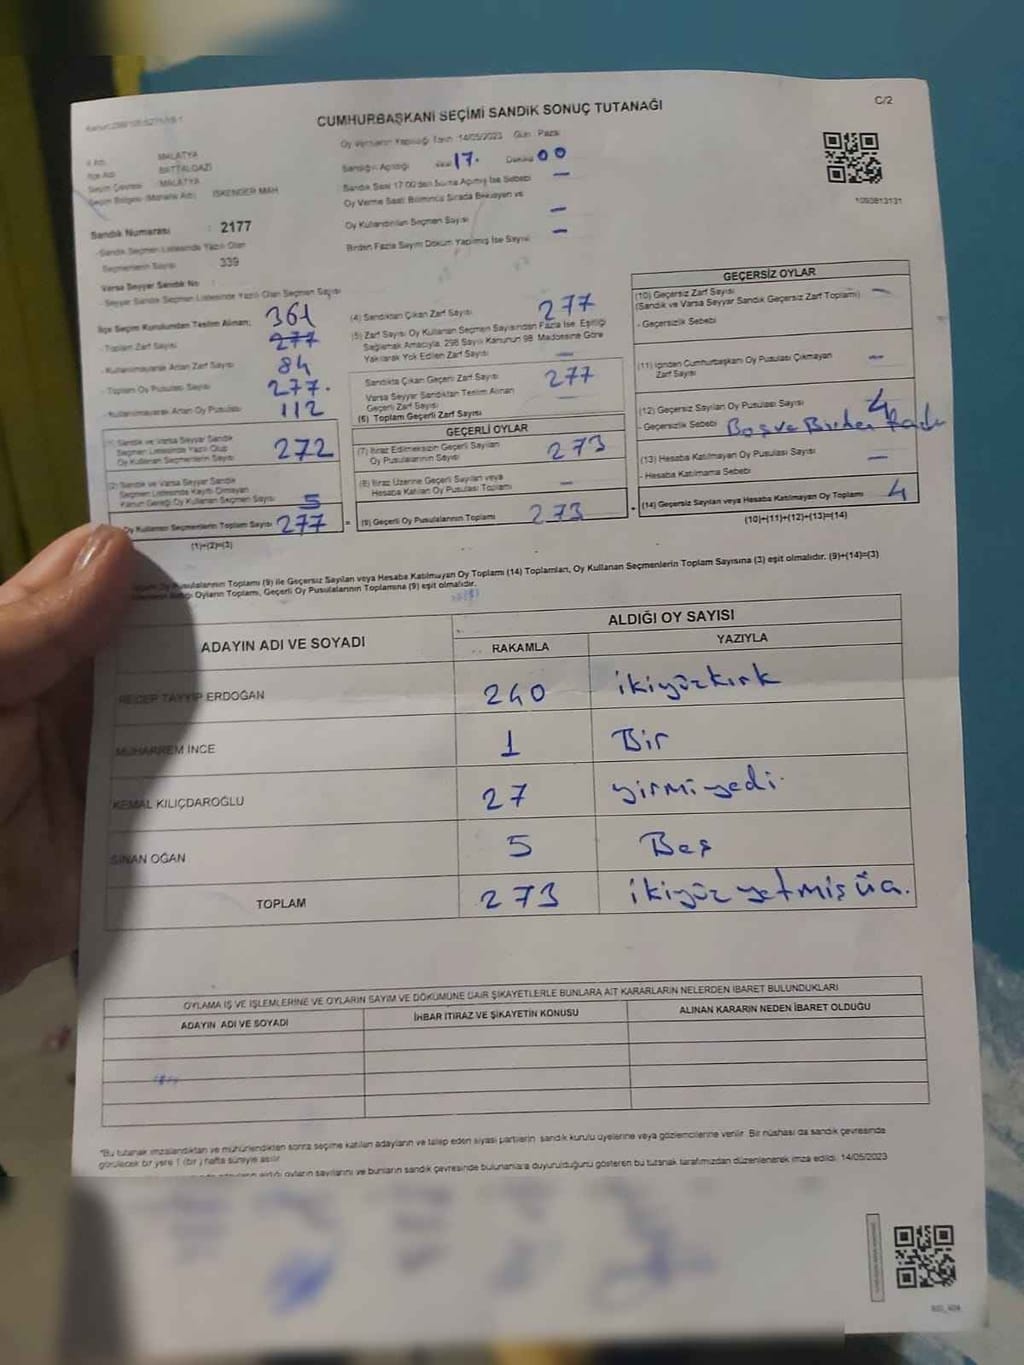 CUMHURBAŞKANI SEÇİMİ SANDIK SONUÇ TUTANAĞI
C/2
Oy Verme'nin Yapıldığı Tarih :14/05/2023 Gün : Pazar
İl Adı MALATYA
İlçe Adı BATTALGAZİ
Seçim Çevresi MALATYA
Seçim Bölgesi (Mahalle Adı) İSKENDER MAH
Sandığın Açıldığı Saat 17. Dakika 00
Sandık Saat 17:00'den Sonra Açılmış İse Sebebi —
Oy Verme Saati Bitiminde Sırada Bekleyen ve
Oy Kullandırılan Seçmen Sayısı —
Birden Fazla Sayım Döküm Yapılmış İse Sayısı —
1093813131
Sandık Numarası : 2177
Sandık Seçmen Listesinde Yazılı Olan
Seçmenlerin Sayısı 339
Varsa Seyyar Sandık No :
- Seyyar Sandık Seçmen Listesinde Yazılı Olan Seçmen Sayısı
İlçe Seçim Kurulundan Teslim Alınan; 361
- Toplam Zarf Sayısı 277
- Kullanılmayarak Artan Zarf Sayısı 84
- Toplam Oy Pusulası Sayısı 277.
- Kullanılmayarak Artan Oy Pusulası 112
(1) Sandık ve Varsa Seyyar Sandık
Seçmen Listesinde Yazılı Olup
Oy Kullanan Seçmenlerin Sayısı 272
(2) Sandık ve Varsa Seyyar Sandık
Seçmen Listesinde Kayıtlı Olmayan
Kanun Gereği Oy Kullanan Seçmen Sayısı 5
Oy Kullanan Seçmenlerin Toplam Sayısı 277
(1)+(2)=(3)
(4) Sandıktan Çıkan Zarf Sayısı 277
(5) Zarf Sayısı Oy Kullanan Seçmen Sayısından Fazla İse, Eşitliği
Sağlamak Amacıyla, 298 Sayılı Kanunun 98. Maddesine Göre
Yakılarak Yok Edilen Zarf Sayısı —
Sandıkta Çıkan Geçerli Zarf Sayısı 277
Varsa Seyyar Sandıktan Teslim Alınan
Geçerli Zarf Sayısı —
(6) Toplam Geçerli Zarf Sayısı
GEÇERLİ OYLAR
(7) İtiraz Edilmeksizin Geçerli Sayılan
Oy Pusulalarının Sayısı 273
(8) İtiraz Üzerine Geçerli Sayılan veya
Hesaba Katılan Oy Pusulası Toplamı —
= (9) Geçerli Oy Pusulalarının Toplamı 273
GEÇERSİZ OYLAR
(10) Geçersiz Zarf Sayısı —
(Sandık ve Varsa Seyyar Sandık Geçersiz Zarf Toplamı)
- Geçersizlik Sebebi
(11) İçinden Cumhurbaşkanı Oy Pusulası Çıkmayan —
Zarf Sayısı
(12) Geçersiz Sayılan Oy Pusulası Sayısı 4
- Geçersizlik Sebebi Boş ve Birden
(13) Hesaba Katılmayan Oy Pusulası Sayısı —
- Hesaba Katılmama Sebebi
+ (14) Geçersiz Sayılan veya Hesaba Katılmayan Oy Toplamı 4
(10)+(11)+(12)+(13)=(14)
Oy Pusulalarının Toplamı (9) ile Geçersiz Sayılan veya Hesaba Katılmayan Oy Toplamı (14) Toplamları, Oy Kullanan Seçmenlerin Toplam Sayısına (3) eşit olmalıdır. (9)+(14)=(3)
Oyların Toplamı, Geçerli Oy Pusulalarının Toplamına (9) eşit olmalıdır.
ADAYIN ADI VE SOYADI ALDIĞI OY SAYISI
RAKAMLA YAZIYLA
RECEP TAYYİP ERDOĞAN 240 ikiyüzkırk
MUHARREM İNCE 1 Bir
KEMAL KILIÇDAROĞLU 27 yirmiyedi
SİNAN OĞAN 5 Beş
TOPLAM 273 ikiyüz yetmiş üç.
OYLAMA İŞ VE İŞLEMLERİNE VE OYLARIN SAYIM VE DÖKÜMÜNE DAİR ŞİKAYETLERLE BUNLARA AİT KARARLARIN NELERDEN İBARET BULUNDUKLARI
ADAYIN ADI VE SOYADI İHBAR İTİRAZ VE ŞİKAYETİN KONUSU ALINAN KARARIN NEDEN İBARET OLDUĞU
*Bu tutanak imzalandıktan ve mühürlendikten sonra seçime katılan adayların ve talep eden siyasi partilerin sandık kurulu üyelerine veya gözlemcilerine verilir. Bir nüshası da sandık çevresinde
görülecek bir yere 1 (bir) hafta süreyle asılır.
oyların sayılarını ve bunların sandık çevresinde bulunanlara duyurulduğunu gösteren bu tutanak tarafımızdan düzenlenerek imza edildi. 14/05/2023